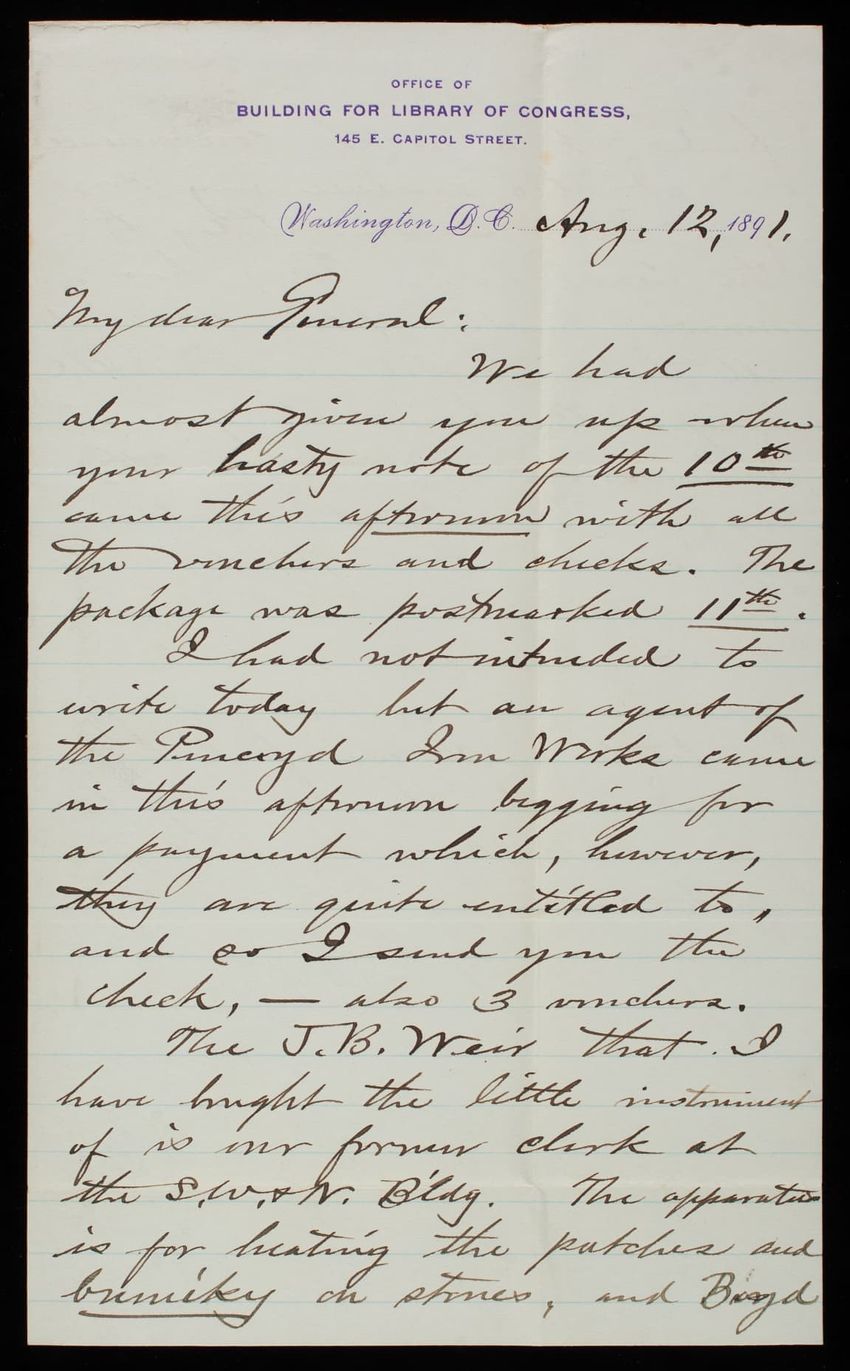 OFFICE OF
BUILDING FOR LIBRARY OF CONGRESS,
145 E. CAPITOL STREET.
Washington, D.C. Aug. 12, 1891.
My dear General:
We had
almost given you up when
your hasty note of the 10th
came this afternoon with all
the vouchers and checks. The
package was postmarked 11th.
I had not intended to
write today but an agent of
the Pencoyd Iron Works came
in this afternoon begging for
a payment which, however,
they are quite entitled to,
and so I send you the
check, — also 3 vouchers.
The J.B. Weir that I
have bought the little instrument
of is our former clerk at
the S.W.&N. B'ldg. The apparatus
is for heating the patches and
on stones, and Boyd